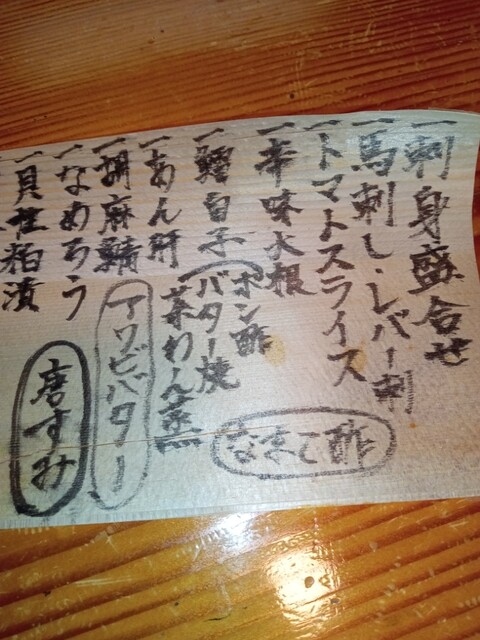 一刺身盛合せ
一馬刺し・レバー刺
一トマトスライス
一辛味大根
一鱈白子
ポン酢
バター焼
茶わん蒸
一あん肝
一胡麻鯖
一なめろう
一貝柱粕漬
なまこ酢
アワビバター
唐すみ